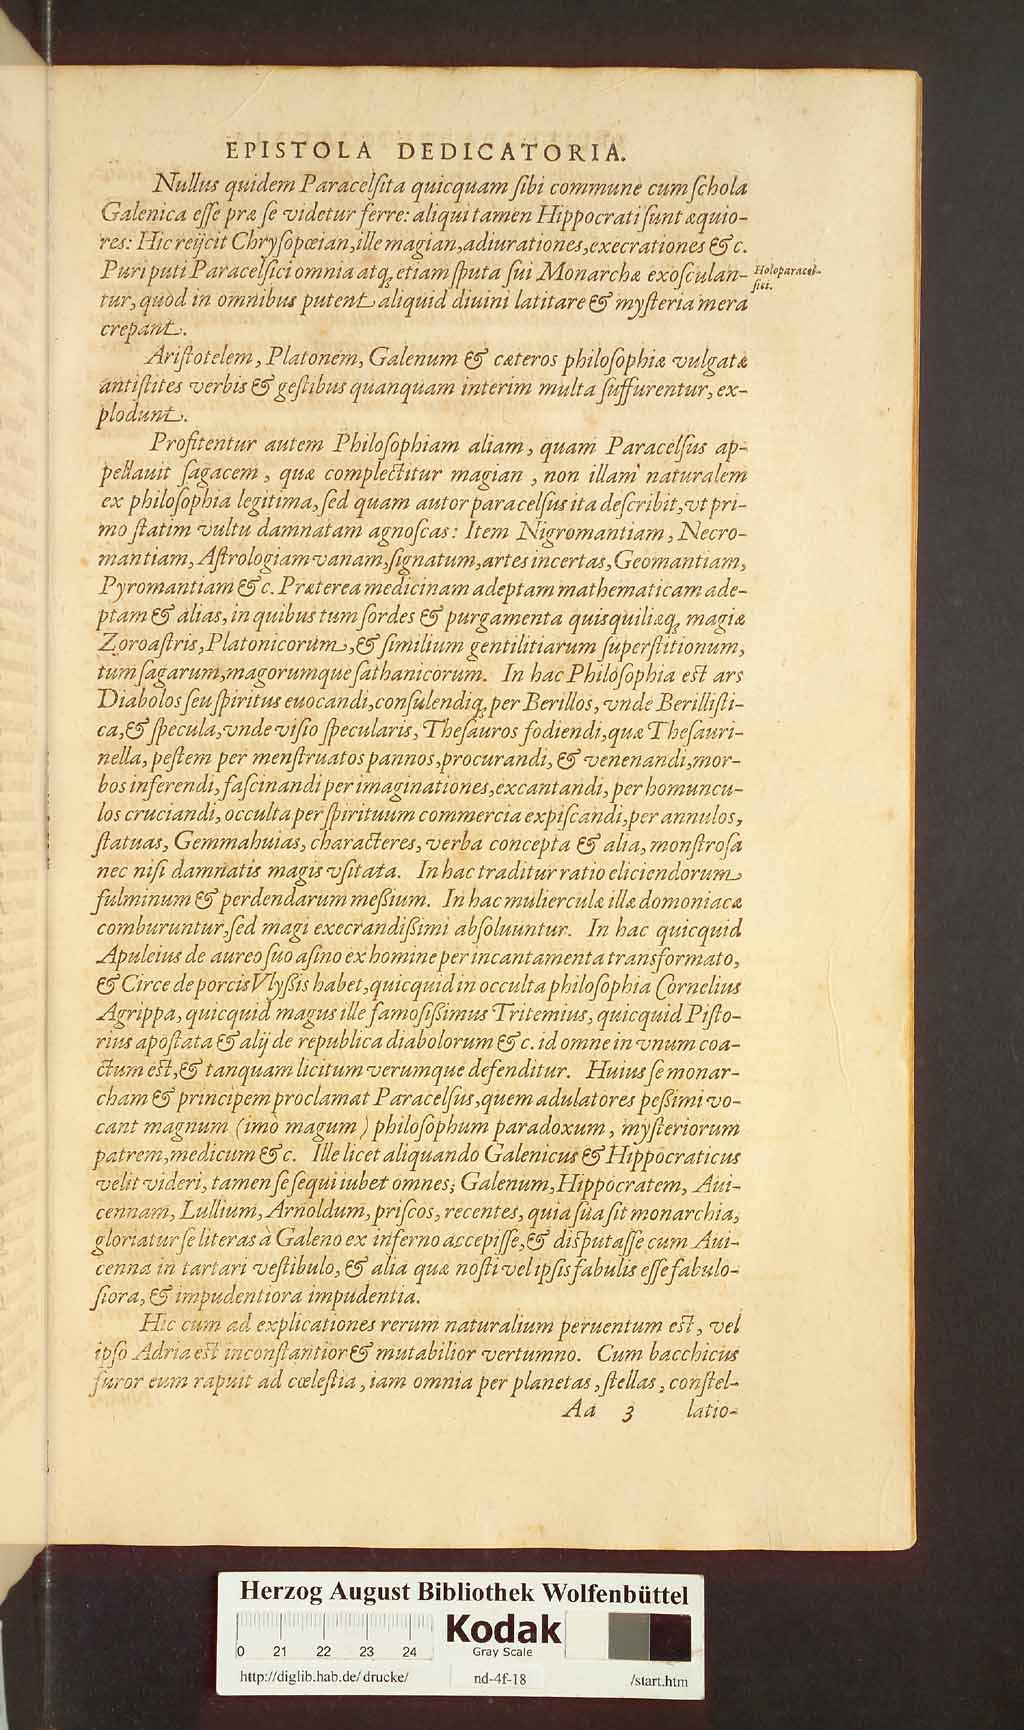 EPISTOLA DEDICATORIA.
Nullus quidem Paracelſita quicquam ſibi commune cum ſchola
Galenica eſſe præ ſe videtur ferre: aliqui tamen Hippocrati ſunt æquio-
res: Hic reijcit Chryſopœian, ille magian, adiurationes, execrationes & c.
Puri puti Paracelſici omnia atq́; etiam ſputa ſui Monarchæ exoſculan-
Holoparacel-
ſici.
tur, quod in omnibus putent aliquid diuini latitare & myſteria mera
crepant.
Ariſtotelem, Platonem, Galenum & cæteros philoſophiæ vulgatæ
antiſtites verbis & geſtibus quanquam interim multa ſuffurentur, ex-
plodunt.
Profitentur autem Philoſophiam aliam, quam Paracelſus ap-
pellauit ſagacem, quæ complectitur magian, non illam naturalem
ex philoſophia legitima, ſed quam autor paracelſus ita deſcribit, vt pri-
mo ſtatim vultu damnatam agnoſcas: Item Nigromantiam, Necro-
mantiam, Aſtrologiam vanam, ſignatum, artes incertas, Geomantiam,
Pyromantiam & c. Præterea medicinam adeptam mathematicam ade-
ptam & alias, in quibus tum ſordes & purgamenta quisquiliæq́; magiæ
Zoroaſtris, Platonicorum, & ſimilium gentilitiarum ſuperſtitionum,
tum ſagarum, magorumque ſathanicorum. In hac Philoſophia eſt ars
Diabolos ſeu ſpiritus euocandi, conſulendiq́; per Berillos, vnde Berilliſti-
ca, & ſpecula, vnde viſio ſpecularis, Theſauros fodiendi, quæ Theſauri-
nella, peſtem per menſtruatos pannos, procurandi, & venenandi, mor-
bos inferendi, faſcinandi per imaginationes, excantandi, per homuncu-
los cruciandi, occulta per ſpirituum commercia expiſcandi, per annulos,
ſtatuas, Gemmahuias, characteres, verba concepta & alia, monſtroſa
nec niſi damnatis magis vſitata. In hac traditur ratio eliciendorum
fulminum & perdendarum meſsium. In hac mulierculæ illæ domoniacæ
comburuntur, ſed magi execrandiſsimi abſoluuntur. In hac quicquid
Apuleius de aureo ſuo aſino ex homine per incantamenta transformato,
& Circe de porcis Vlyſsis habet, quicquid in occulta philoſophia Cornelius
Agrippa, quicquid magus ille famoſiſsimus Tritemius, quicquid Piſto-
rius apoſtata & alij de republica diabolorum & c. id omne in vnum coa-
ctum eſt, & tanquam licitum verumque defenditur. Huius ſe monar-
cham & principem proclamat Paracelſus, quem adulatores peſsimi vo-
cant magnum (imò magum) philoſophum paradoxum, myſteriorum
patrem, medicum & c. Ille licet aliquando Galenicus & Hippocraticus
velit videri, tamen ſe ſequi iubet omnes; Galenum, Hippocratem, Aui-
cennam, Lullium, Arnoldum, priſcos, recentes, quia ſua ſit monarchia,
gloriatur ſe literas à Galeno ex inferno accepiſſe, & diſputaſſe cum Aui-
cenna in tartari veſtibulo, & alia quæ noſti vel ipſis fabulis eſſe fabulo-
ſiora, & impudentiora impudentia.
Hic cum ad explicationes rerum naturalium peruentum eſt, vel
ipſo Adria eſt inconſtantior & mutabilior vertumno. Cum bacchicus
furor eum rapuit ad cœleſtia, iam omnia per planetas, ſtellas, conſtel-
Aa 3 latio-
Herzog August Bibliothek Wolfenbüttel
0 21 22 23 24
Kodak
Gray Scale
http://diglib.hab.de/drucke/ nd-4f-18 /start.htm